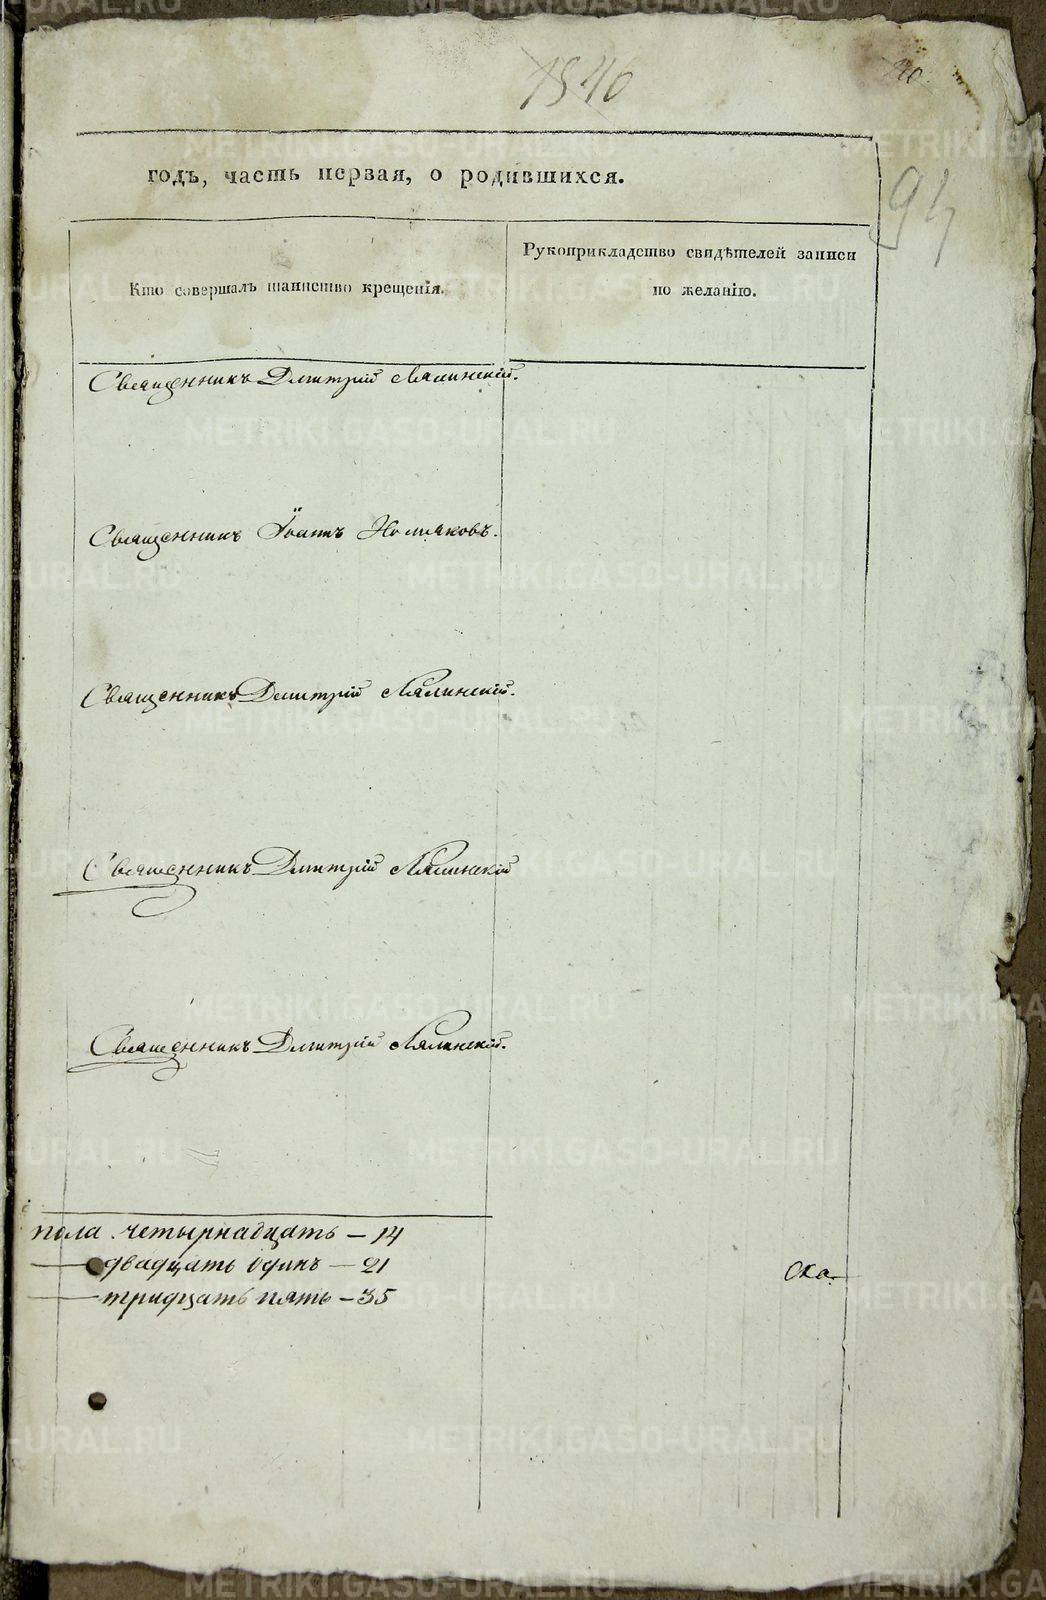 1840
94
годъ, часть первая, о родившихся.
Кто совершалъ таинство крещенія.
Рукоприкладство свидѣтелей записи
по желанію.
Священникъ Дмитрій Лялинскій.
Священникъ Іоаннъ
Священникъ Дмитрій Лялинскій.
Священникъ Дмитрій Лялинскій
Священникъ Дмитрій Лялинскій.
пола. четырнадцать — 14
— двадцать одинъ — 21
— тридцать пять — 35
METRIKI.GASO-URAL.RU